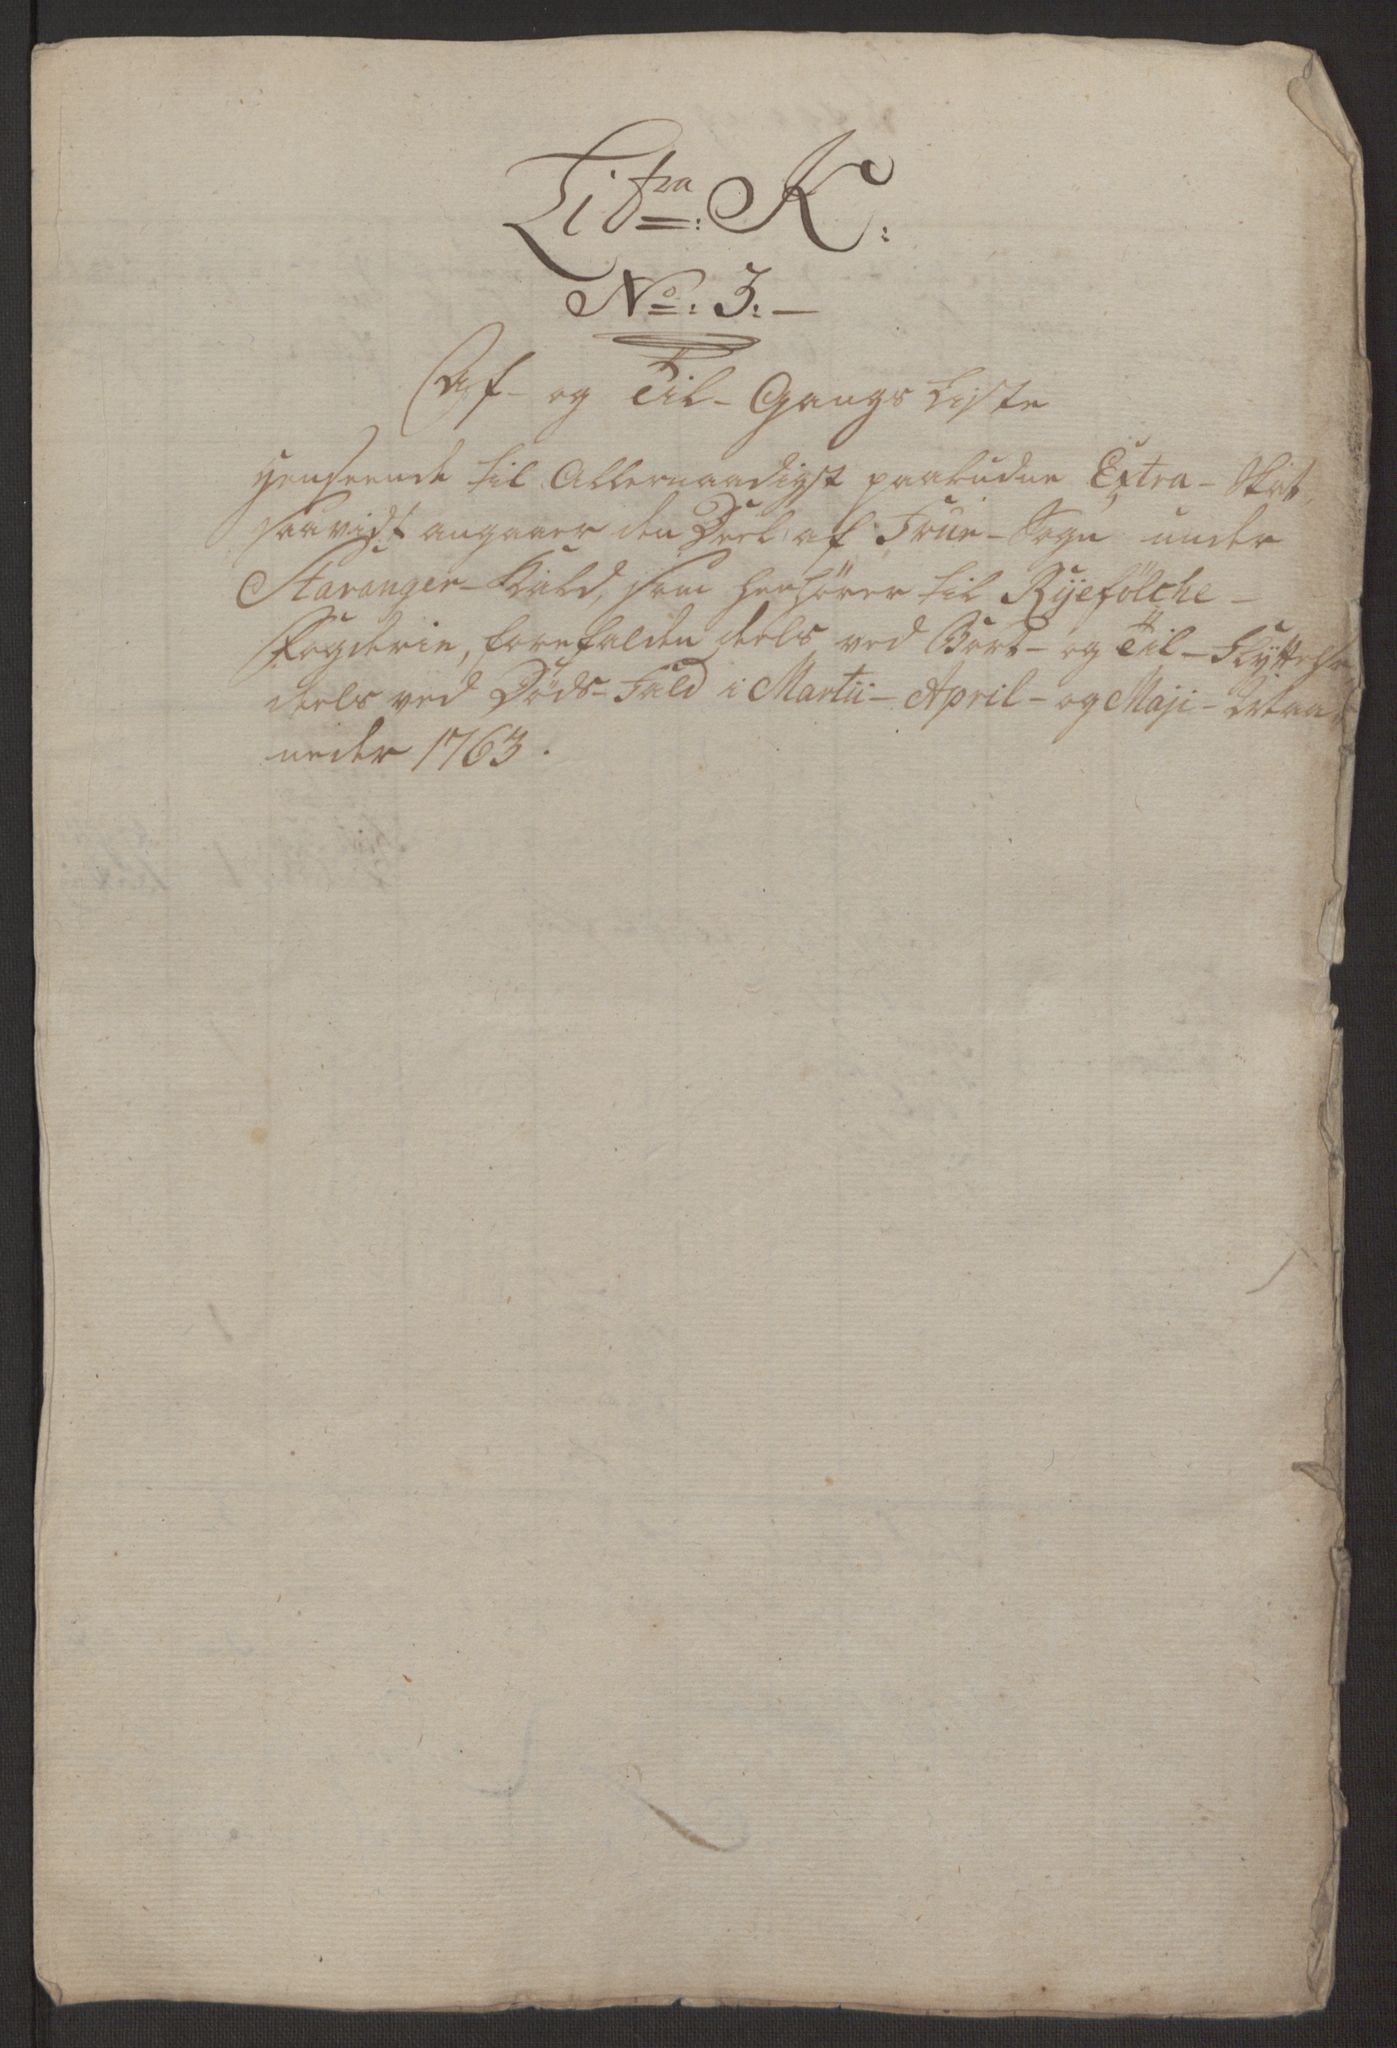 Litra: K:
No: 3:
Af- og Til- Gangs Liste
henseende til Allernaadigst paabudne Extra- Skat,
saavidt angaaer den Deel af Frue- Sogn under
Stavanger- Kald, som henhører til Ryefølche-
Fogderie, forefalden deels ved Bort- og Til- Flyttelse,
deels ved Døds- Fald i Martii- April- og Maji- Maa-
neder 1763.